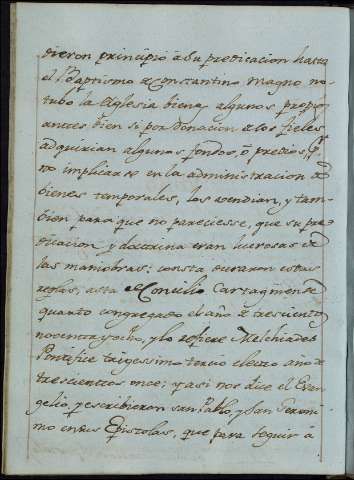 dieron principio â su predicacion hasta
el Baptismo de Constantino Magno no
tubo la Yglesia bienes algunos propios
antes bien si por donacion de los fieles
adquirian algunos fondos, ô predios, pr
no implicarse en la administracion de
bienes temporales, los vendian, y tam-
bien para que no pareciesse, que su pre-
dicacion y doctrina eran lucrosas de
las maniobras: consta, duraron estas
reglas, asta el Concilio Cartaginense
quarto congregado el año de trescientos
noventa y ocho, y lo refiere Melchiades
Pontifice trigessimo tercio electo año de
trescientos once; y asi nos dice el Evan-
gelio, y escribieron san Pablo, y San Geroni-
mo en sus Epistolas, que para seguir â